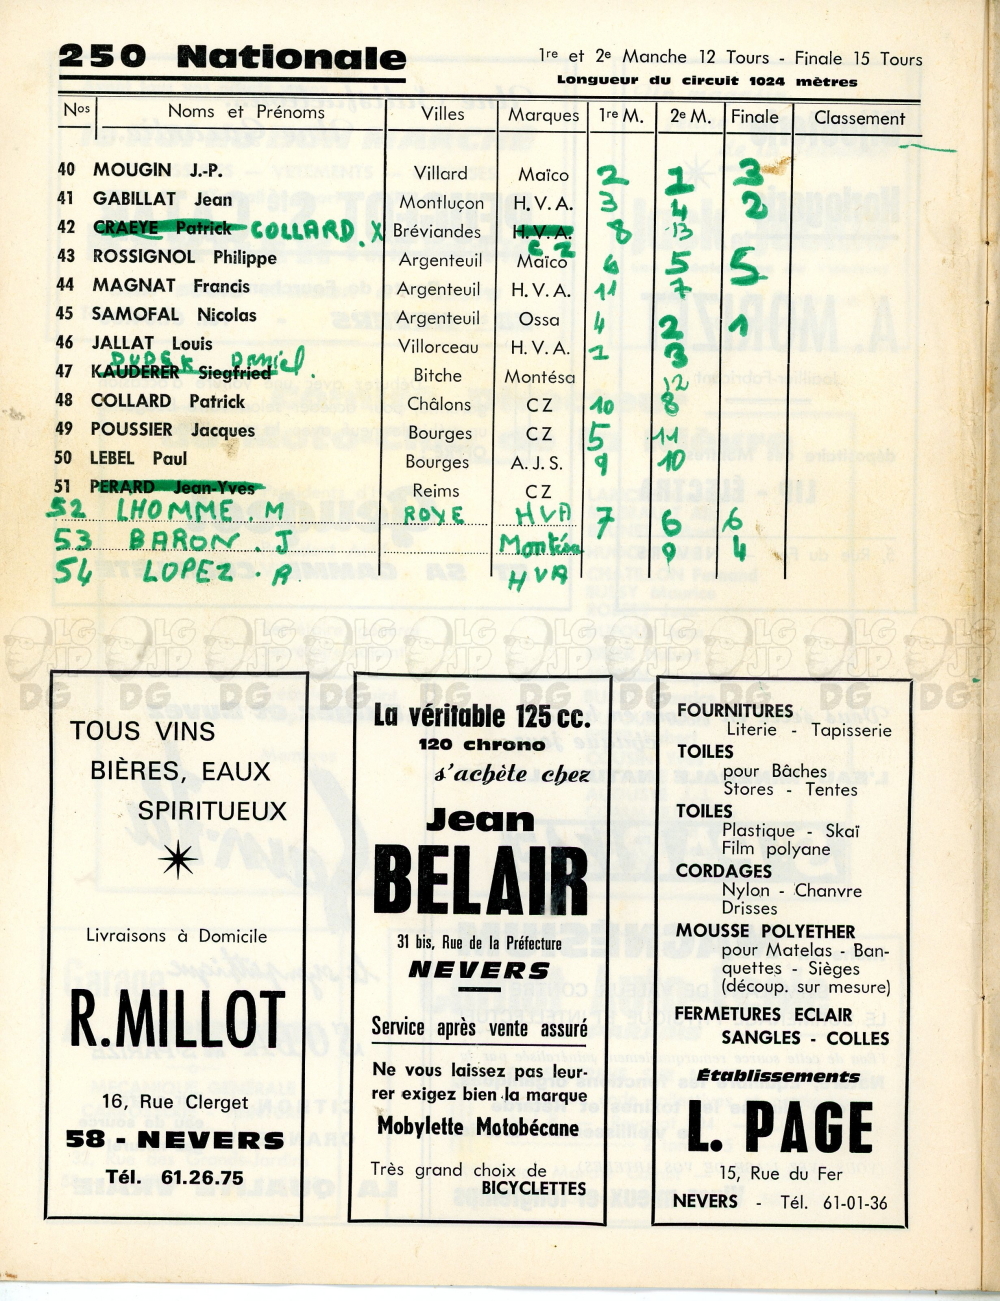 250 Nationale
1re et 2e Manche 12 Tours - Finale 15 Tours
Longueur du circuit 1024 mètres
Nos Noms et Prénoms Villes Marques 1re M. 2e M. Finale Classement
40 MOUGIN J.-P. Villard Maïco 2 1 3
41 GABILLAT Jean Montluçon H.V.A. 3 4 2
42 CRAEYE Patrick COLLARD.X Bréviandes H.V.A. 8 13
CZ
43 ROSSIGNOL Philippe Argenteuil Maïco 6 5 5
44 MAGNAT Francis Argenteuil H.V.A. 11 7
45 SAMOFAL Nicolas Argenteuil Ossa 4 2 1
46 JALLAT Louis Villorceau H.V.A. 1 3
DUDEK Daniel.
47 KAUDERER Siegfried Bitche Montésa 12
48 COLLARD Patrick Châlons CZ 10 8
49 POUSSIER Jacques Bourges CZ 5 11
50 LEBEL Paul Bourges A.J.S. 9 10
51 PERARD Jean-Yves Reims CZ
52 LHOMME M ROYE HVA 7 6 6
53 BARON. J Montésa 9 4
54 LOPEZ. A. HVA
TOUS VINS
BIÈRES, EAUX
SPIRITUEUX
Livraisons à Domicile
R. MILLOT
16, Rue Clerget
58 - NEVERS
Tél. 61.26.75
La véritable 125 cc.
120 chrono
s'achète chez
Jean
BELAIR
31 bis, Rue de la Préfecture
NEVERS
Service après vente assuré
Ne vous laissez pas leur-
rer exigez bien la marque
Mobylette Motobécane
Très grand choix de
BICYCLETTES
FOURNITURES
Literie - Tapisserie
TOILES
pour Bâches
Stores - Tentes
TOILES
Plastique - Skaï
Film polyane
CORDAGES
Nylon - Chanvre
Drisses
MOUSSE POLYETHER
pour Matelas - Ban-
quettes - Sièges
(découp. sur mesure)
FERMETURES ECLAIR
SANGLES - COLLES
Établissements
L. PAGE
15, Rue du Fer
NEVERS - Tél. 61-01-36